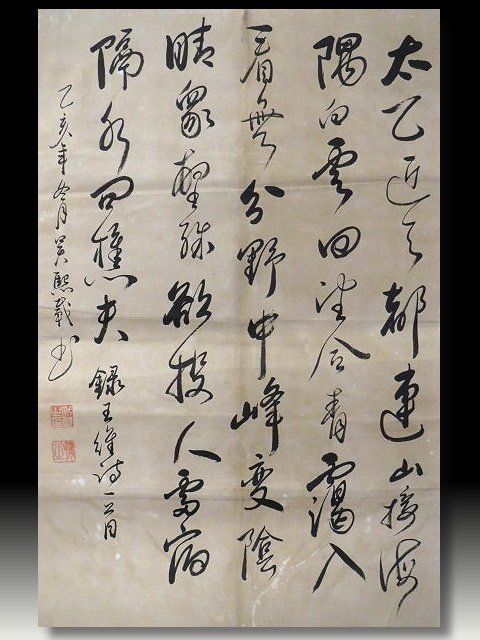 太乙近天都連山接海
隅白雲回望合青靄入
看無分野中峰變陰
晴眾壑殊欲投人處宿
隔水問樵夫 錄王維詩一首
乙亥年冬月吳熙載書